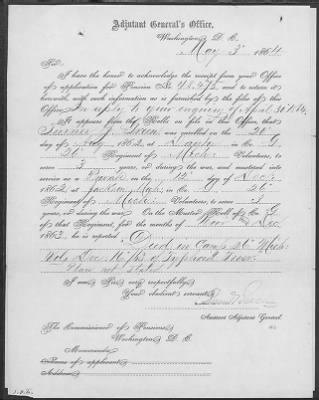 Adjutant General's Office,
Washington, D. C.
May 3d 1864
Sir:
I have the honor to acknowledge the receipt from your Office
of application for Pension No. 48,973, and to return it
herewith, with such information as is furnished by the files of this
Office. In reply to your enquiry of April 30, 1864
It appears from the Rolls on file in this Office, that
was enrolled on the 26th
day of July, 1862, at in Co. G,
26th Regiment of Mich. Volunteers, to
serve 3 years, or during the war, and mustered into
service as a Private on the 12th day of Dec.,
1862, at Jackson Mich, in Co. G, 26th
Regiment of Mich. Volunteers, to serve 3
years, or during the war. On the Muster Roll of Co. G
of that Regiment, for the months of Nov. & Dec.
1862, he is reported Died in Camp 26th Mich
Vols Dec. of Typhoid Fever.
Place not Stated
I am, Sir, very respectfully,
Your obedient servant,
Assistant Adjutant General.
The Commissioner of Pensions,
Washington, D. C.
Memoranda:
Name of applicant,
Address,